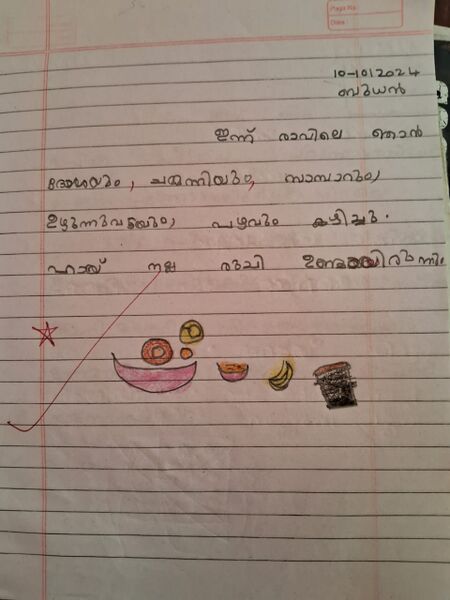 Page No.
Date :
10-10/2024
ബുധൻ
ഇന്ന് രാവിലെ ഞാൻ
ദോശയും, ചമ്മന്തിയും, സാമ്പാറും,
ഉഴുന്നുവടയും, പഴവും കഴിച്ചു.
ഹായ് നല്ല രുചി ഉണ്ടായിരുന്നു.